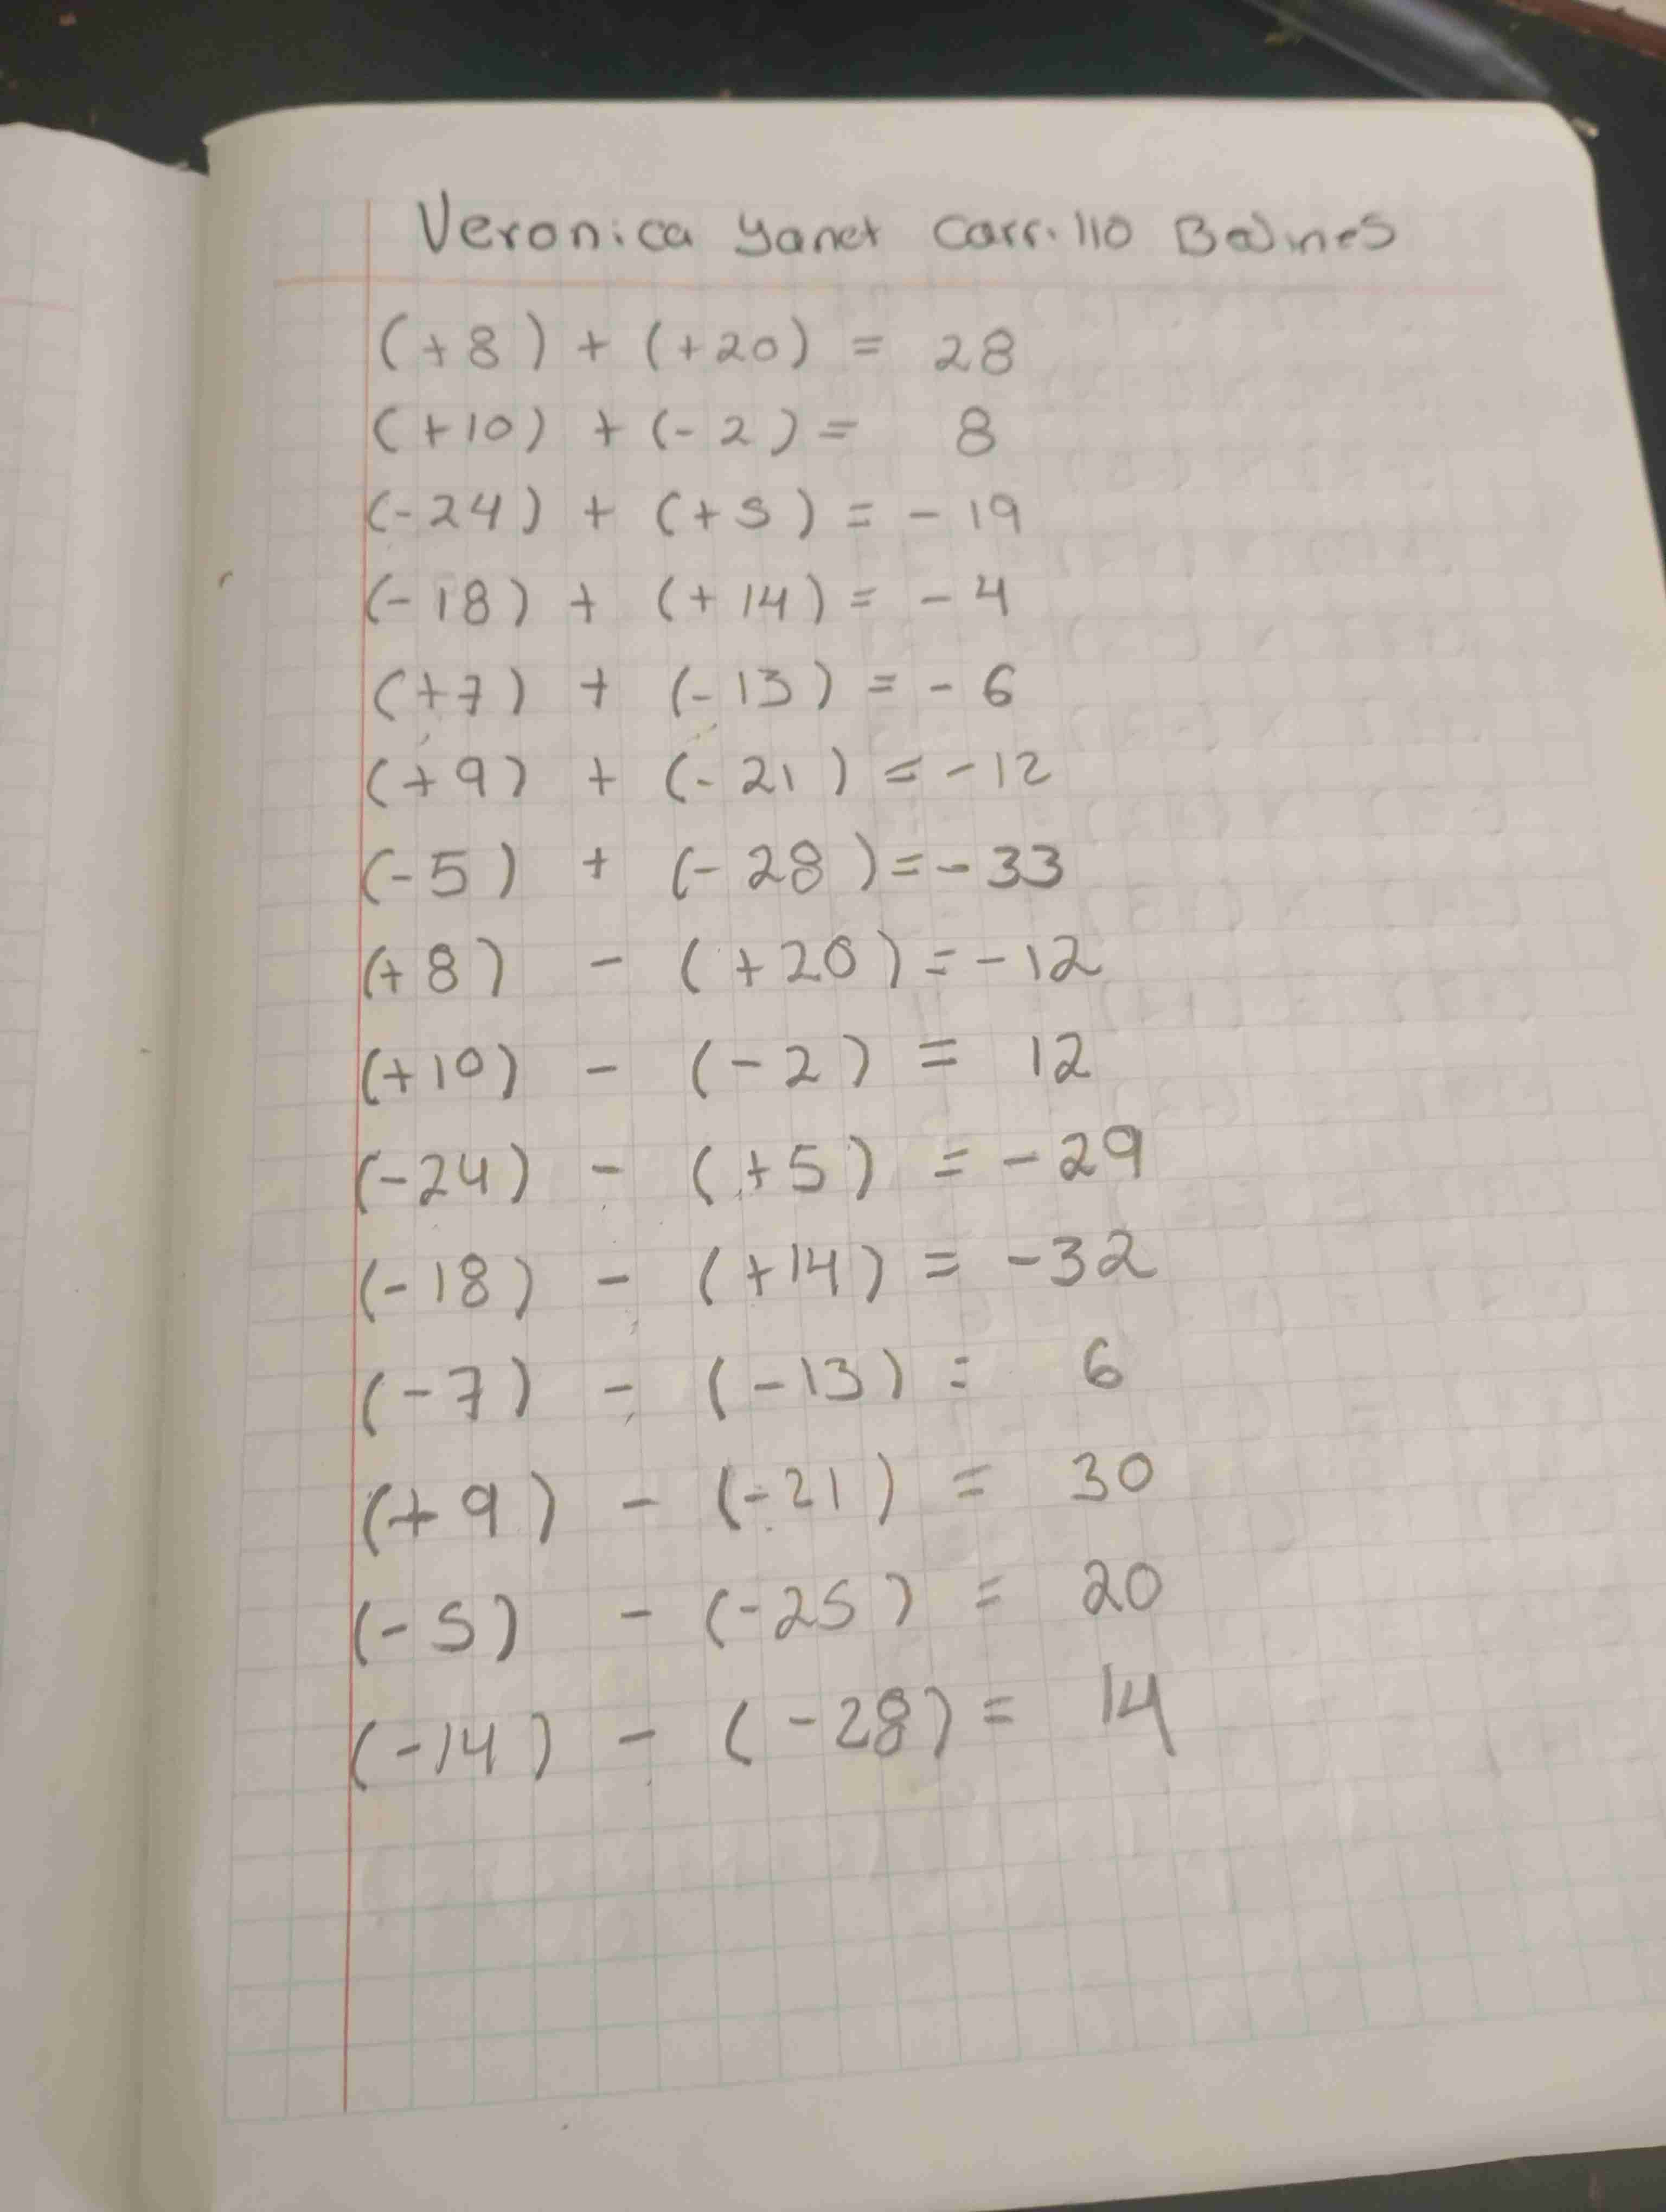 Veronica Yanet Carrillo
(+8) + (+20) = 28
(+10) + (-2) = 8
(-24) + (+5) = -19
(-18) + (+14) = -4
(+7) + (-13) = -6
(+9) + (-21) = -12
(-5) + (-28) = -33
(+8) - (+20) = -12
(+10) - (-2) = 12
(-24) - (+5) = -29
(-18) - (+14) = -32
(-7) - (-13) = 6
(+9) - (-21) = 30
(-5) - (-25) = 20
(-14) - (-28) = 14